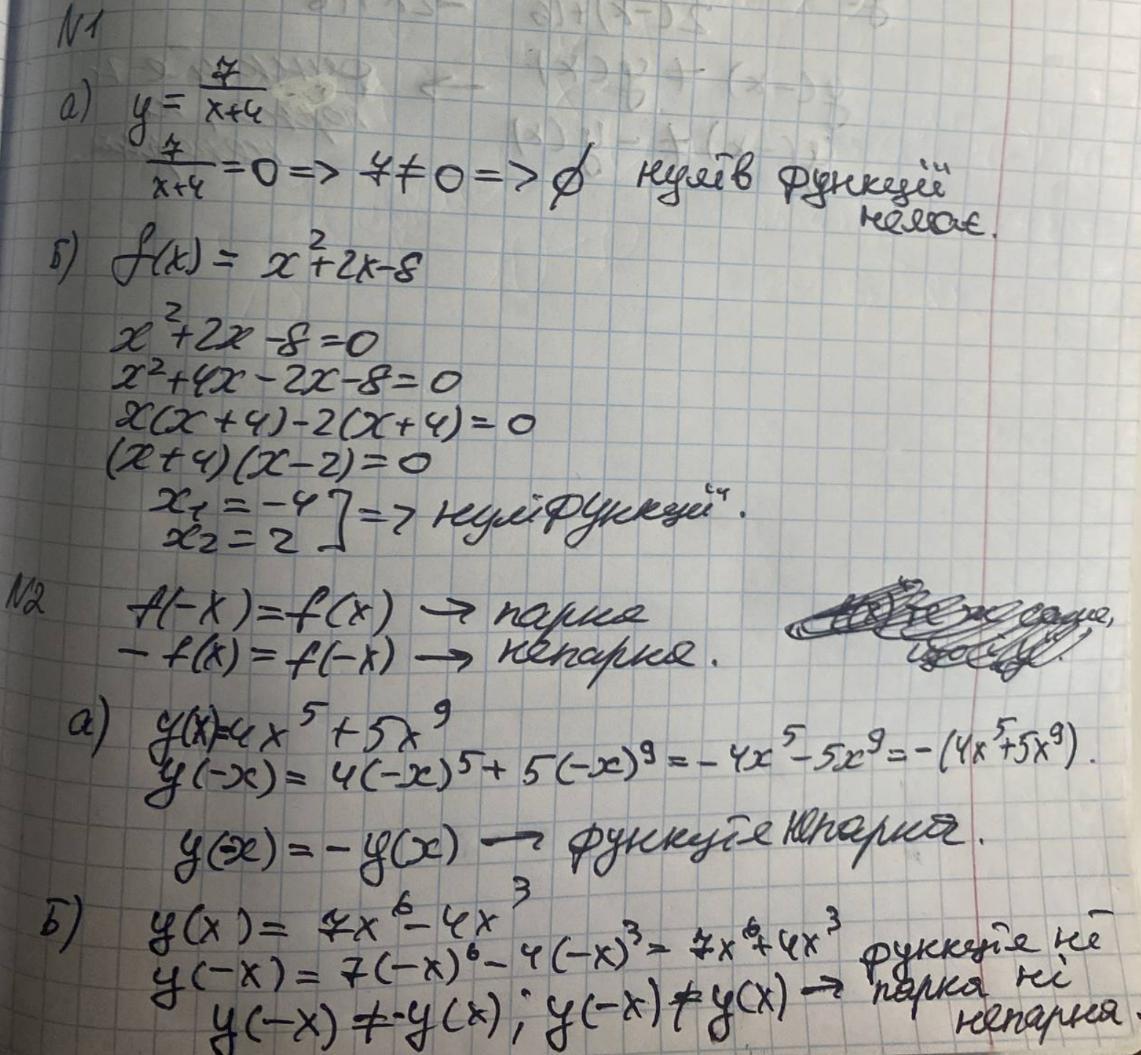 N1
а) y = 7/(x+4)
7/(x+4) = 0 => 7 ≠ 0 => ∅ нулів функцій
немає.
Б) f(x) = x²+2x-8
x²+2x-8=0
x²+4x-2x-8=0
x(x+4)-2(x+4)=0
(x+4)(x-2)=0
x₁=-4
x₂=2 ] => нулі функцій.
N2 f(-x)=f(x) → парна
-f(x)=f(-x) → непарна.
а) y(x)=4x⁵+5x⁹
y(-x)=4(-x)⁵+5(-x)⁹=-4x⁵-5x⁹=-(4x⁵+5x⁹).
y(-x)=-y(x) → функція непарна.
Б) y(x)=7x⁶-4x³
y(-x)=7(-x)⁶-4(-x)³=7x⁶+4x³ функція ні
y(-x)≠-y(x); y(-x)≠y(x) → парна ні
непарна.